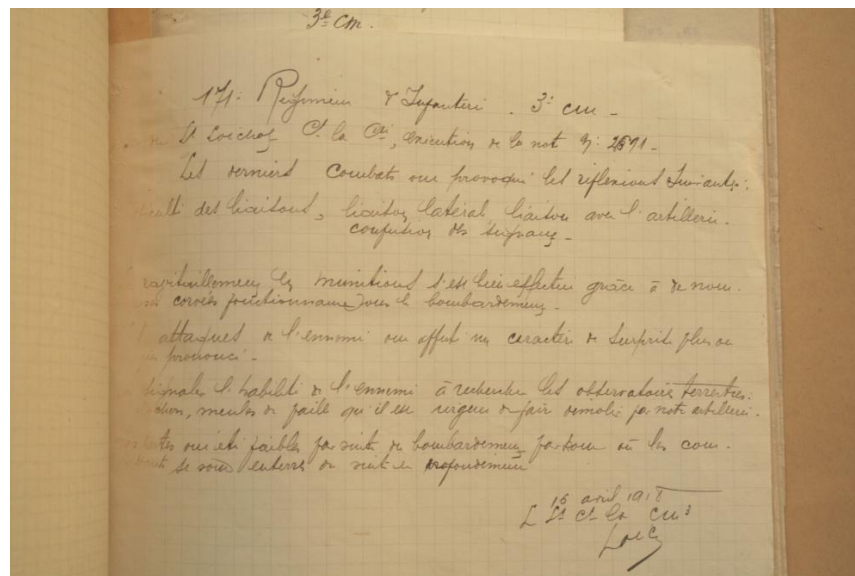 3e Cm.
171e Régiment d'Infanterie. 3e cm -
du Lt Ct la Cie, exécution de la note No 2571.
Les derniers Combats ont provoqué les réflexions suivantes:
des liaisons, liaison latéral liaison avec l'artillerie.
confusion des
munitions s'est bien effectué grâce à de nom-
corvées fonctionnant sous le bombardement.
attaques de l'ennemi ont un caractère de surprise plus ou
prononcé.
l'habileté de l'ennemi à rechercher les observatoires terrestres.
meules de paille qu'il est urgent de faire démolir par notre artillerie.
pertes ont été faibles par suite du bombardement partout où les com-
se sont enterrés de suite et profondément
16 avril 1918
L Lt Ct la Cm3